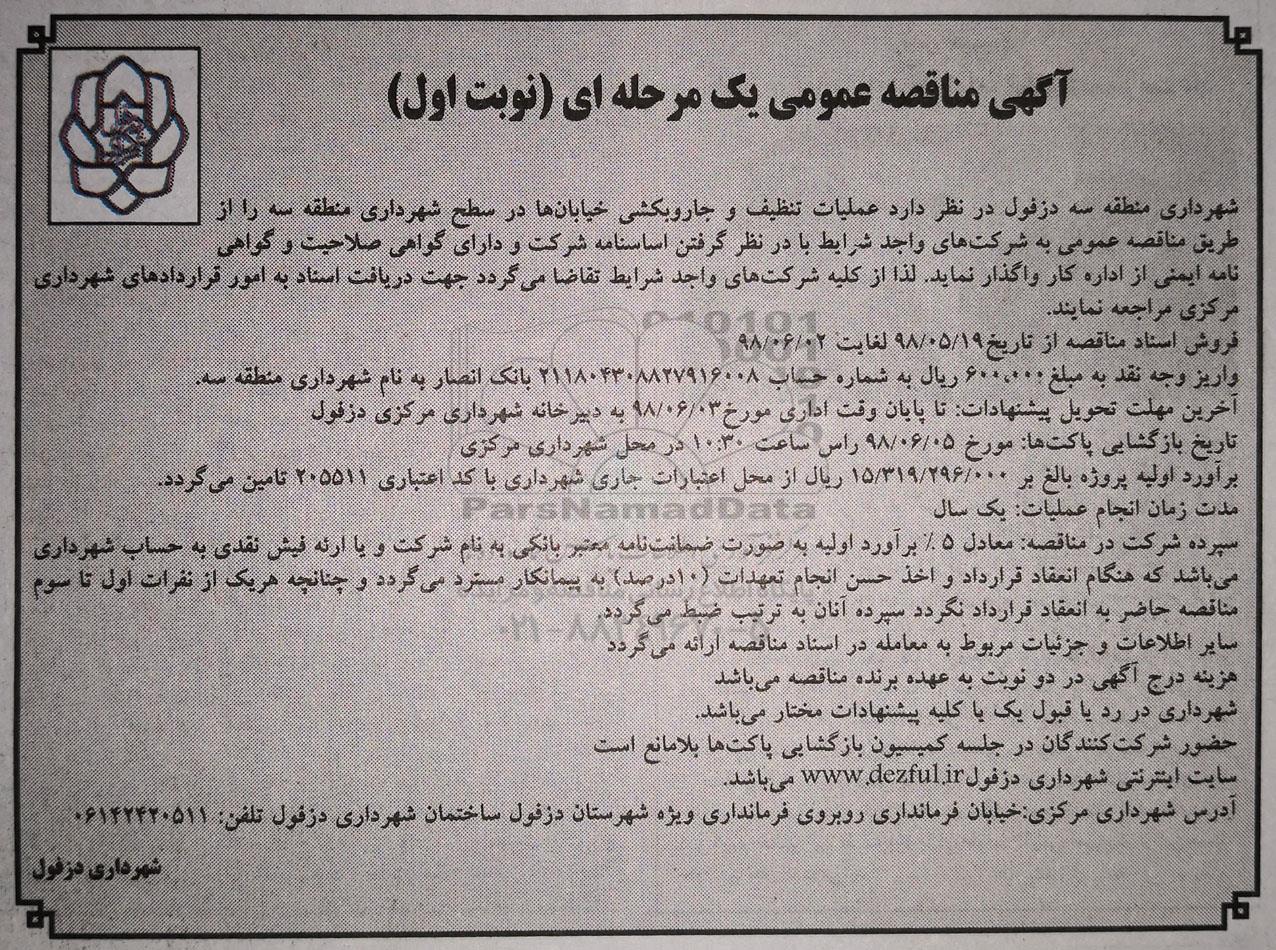 آگهی مناقصه عمومی یک مرحله ای (نوبت اول)
شهرداری منطقه سه دزفول در نظر دارد عملیات تنظیف و جاروبکشی خیابان‌ها در سطح شهرداری منطقه سه را از
طریق مناقصه عمومی به شرکت‌های واجد شرایط با در نظر گرفتن اساسنامه شرکت و دارای گواهی صلاحیت و گواهی
نامه ایمنی از اداره کار واگذار نماید. لذا از کلیه شرکت‌های واجد شرایط تقاضا می‌گردد جهت دریافت اسناد به امور قراردادهای شهرداری
مرکزی مراجعه نمایند.
فروش اسناد مناقصه از تاریخ۹۸/۰۵/۱۹ لغایت ۹۸/۰۶/۰۲
واریز وجه نقد به مبلغ۶۰۰،۰۰۰ ریال به شماره حساب ۲۱۱۸۰۴۳۰۸۸۲۷۹۱۶۰۰۸ بانک انصار به نام شهرداری منطقه سه.
آخرین مهلت تحویل پیشنهادات: تا پایان وقت اداری مورخ۹۸/۰۶/۰۳ به دبیرخانه شهرداری مرکزی دزفول
تاریخ بازگشایی پاکت‌ها: مورخ ۹۸/۰۶/۰۵ راس ساعت ۱۰:۳۰ در محل شهرداری مرکزی
برآورد اولیه پروژه بالغ بر ۱۵/۳۱۹/۲۹۶/۰۰۰ ریال از محل اعتبارات جاری شهرداری با کد اعتباری ۲۰۵۵۱۱ تامین می‌گردد.
مدت زمان انجام عملیات: یک سال
سپرده شرکت در مناقصه: معادل ۵ ٪ برآورد اولیه به صورت ضمانت‌نامه معتبر بانکی به نام شرکت و یا ارئه فیش نقدی به حساب شهرداری
می‌باشد که هنگام انعقاد قرارداد و اخذ حسن انجام تعهدات (۱۰درصد) به پیمانکار مسترد می‌گردد و چنانچه هریک از نفرات اول تا سوم
مناقصه حاضر به انعقاد قرارداد نگردد سپرده آنان به ترتیب ضبط می‌گردد.
سایر اطلاعات و جزئیات مربوط به معامله در اسناد مناقصه ارائه می‌گردد
هزینه درج آگهی در دو نوبت به عهده برنده مناقصه می‌باشد
شهرداری در رد یا قبول یک یا کلیه پیشنهادات مختار می‌باشد.
حضور شرکت‌کنندگان در جلسه کمیسیون بازگشایی پاکت‌ها بلامانع است
سایت اینترنتی شهرداری دزفولwww.dezful.ir می‌باشد.
آدرس شهرداری مرکزی:خیابان فرمانداری روبروی فرمانداری ویژه شهرستان دزفول ساختمان شهرداری دزفول تلفن: ۰۶۱۴۲۴۲۰۵۱۱
شهرداری دزفول
ParsNamadData